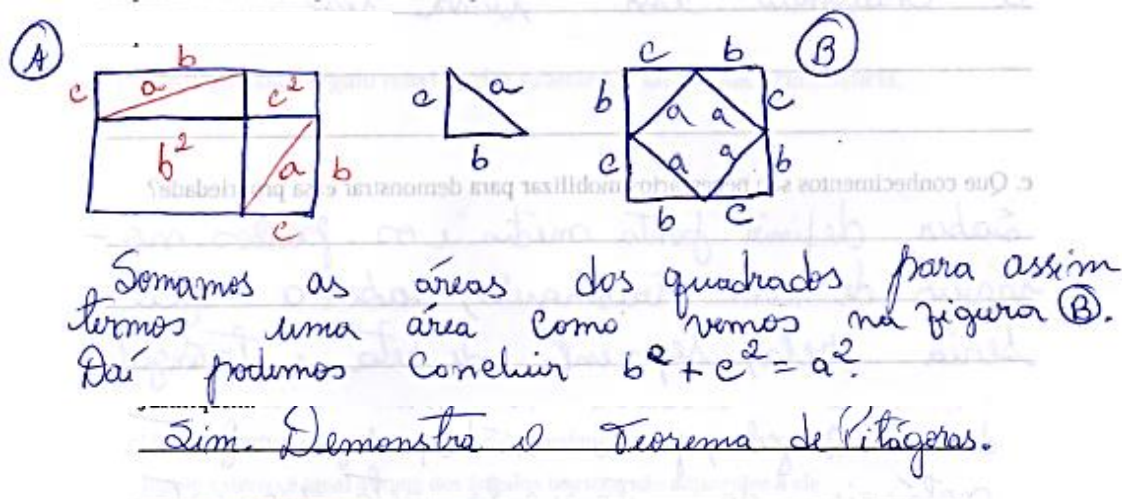 A
b
c
a
c²
b²
a
b
c
c
a
b
B
c
b
b
c
a
a
a
a
c
b
b
c
Somamos as áreas dos quadrados para assim
termos uma área como vemos na figura B.
Daí podemos concluir b² + c² = a².
Sim. Demonstra o Teorema de Pitágoras.